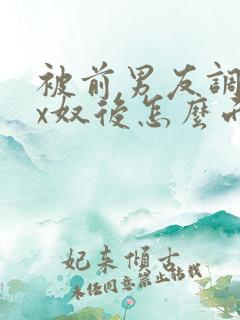 被前男友調
x奴後怎麼
妃来傾古
未任同意禁止转載